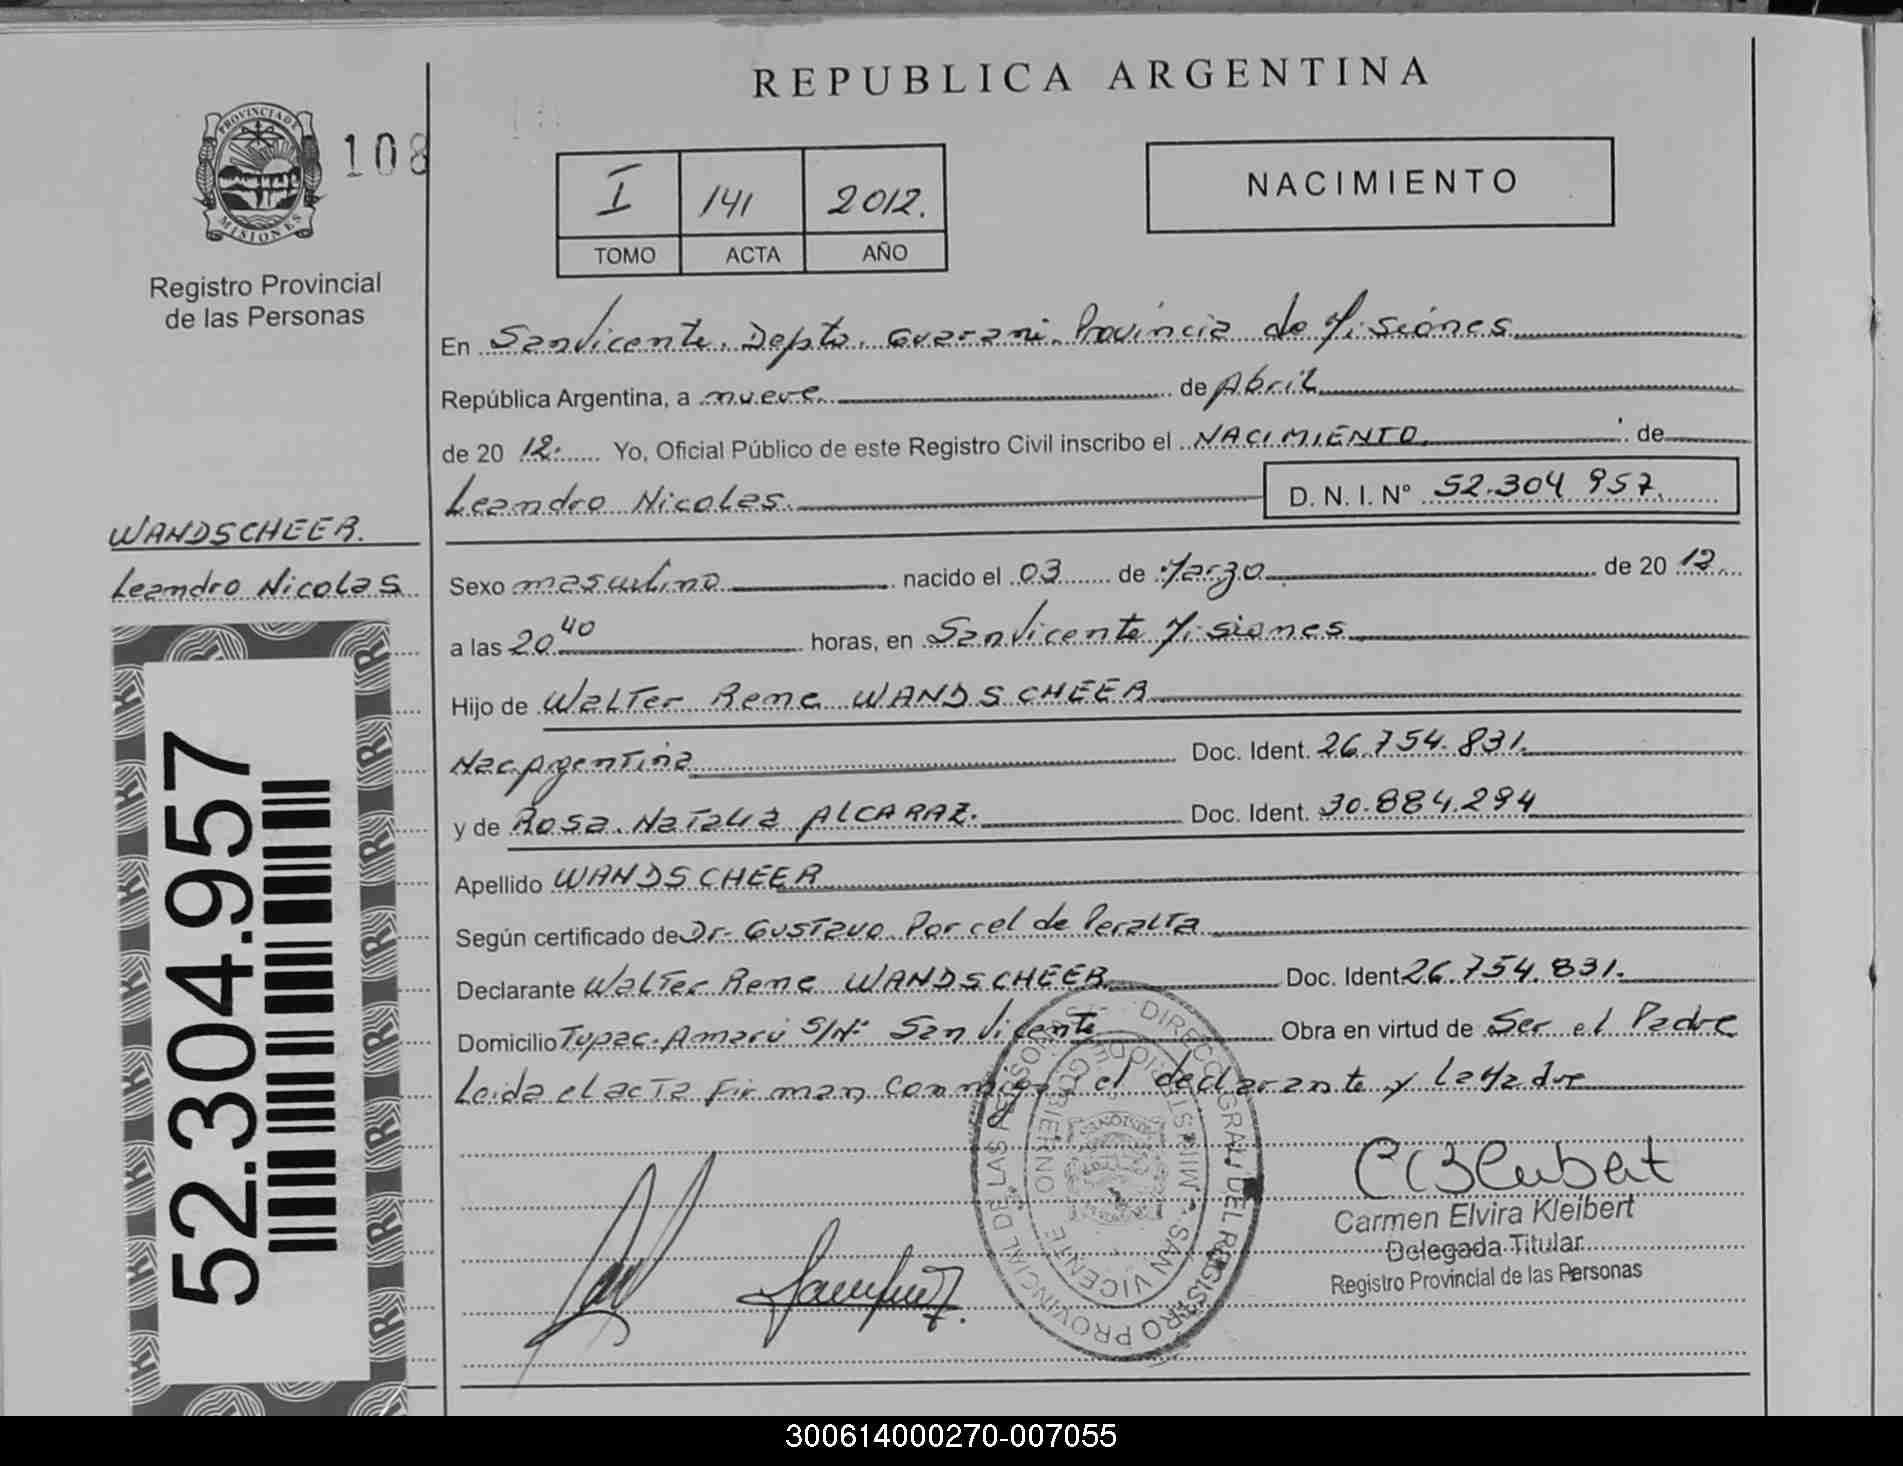 REPUBLICA ARGENTINA
PROVINCIA DE
MISIONES
108
Registro Provincial
de las Personas
I 141 2012.
TOMO ACTA AÑO
NACIMIENTO
En San Vicente. Depto. Guarani. Provincia de Misiones
República Argentina, a nueve de Abril
de 20 12. Yo, Oficial Público de este Registro Civil inscribo el NACIMIENTO de
Leandro Nicolas. D. N. I. N° 52.304 957.
WANDSCHEER.
Leandro Nicolas
Sexo masculino nacido el 03 de Marzo de 20 12
a las 20 40 horas, en San Vicente Misiones
Hijo de Walter Rene WANDSCHEER
Nac Argentina Doc. Ident. 26.754.831.
y de Rosa Natalia ALCARAZ. Doc. Ident. 30.884.294
Apellido WANDSCHEER
Según certificado de Dr. Gustavo Porcel de Peralta
Declarante Walter Rene WANDSCHEER Doc. Ident 26.754.831.
Domicilio Tupac Amarú S/N° San Vicente Obra en virtud de Ser el Padre
Leida el acta Firman conmigo el declarante y la Madre
52.304.957
DIRECC. GRAL. DEL REGISTRO PROVINCIAL DE LAS PERSONAS
MINISTERIO DE GOBIERNO
SAN VICENTE
MISIONES
Carmen Elvira Kleibert
Delegada Titular
Registro Provincial de las Personas
300614000270-007055